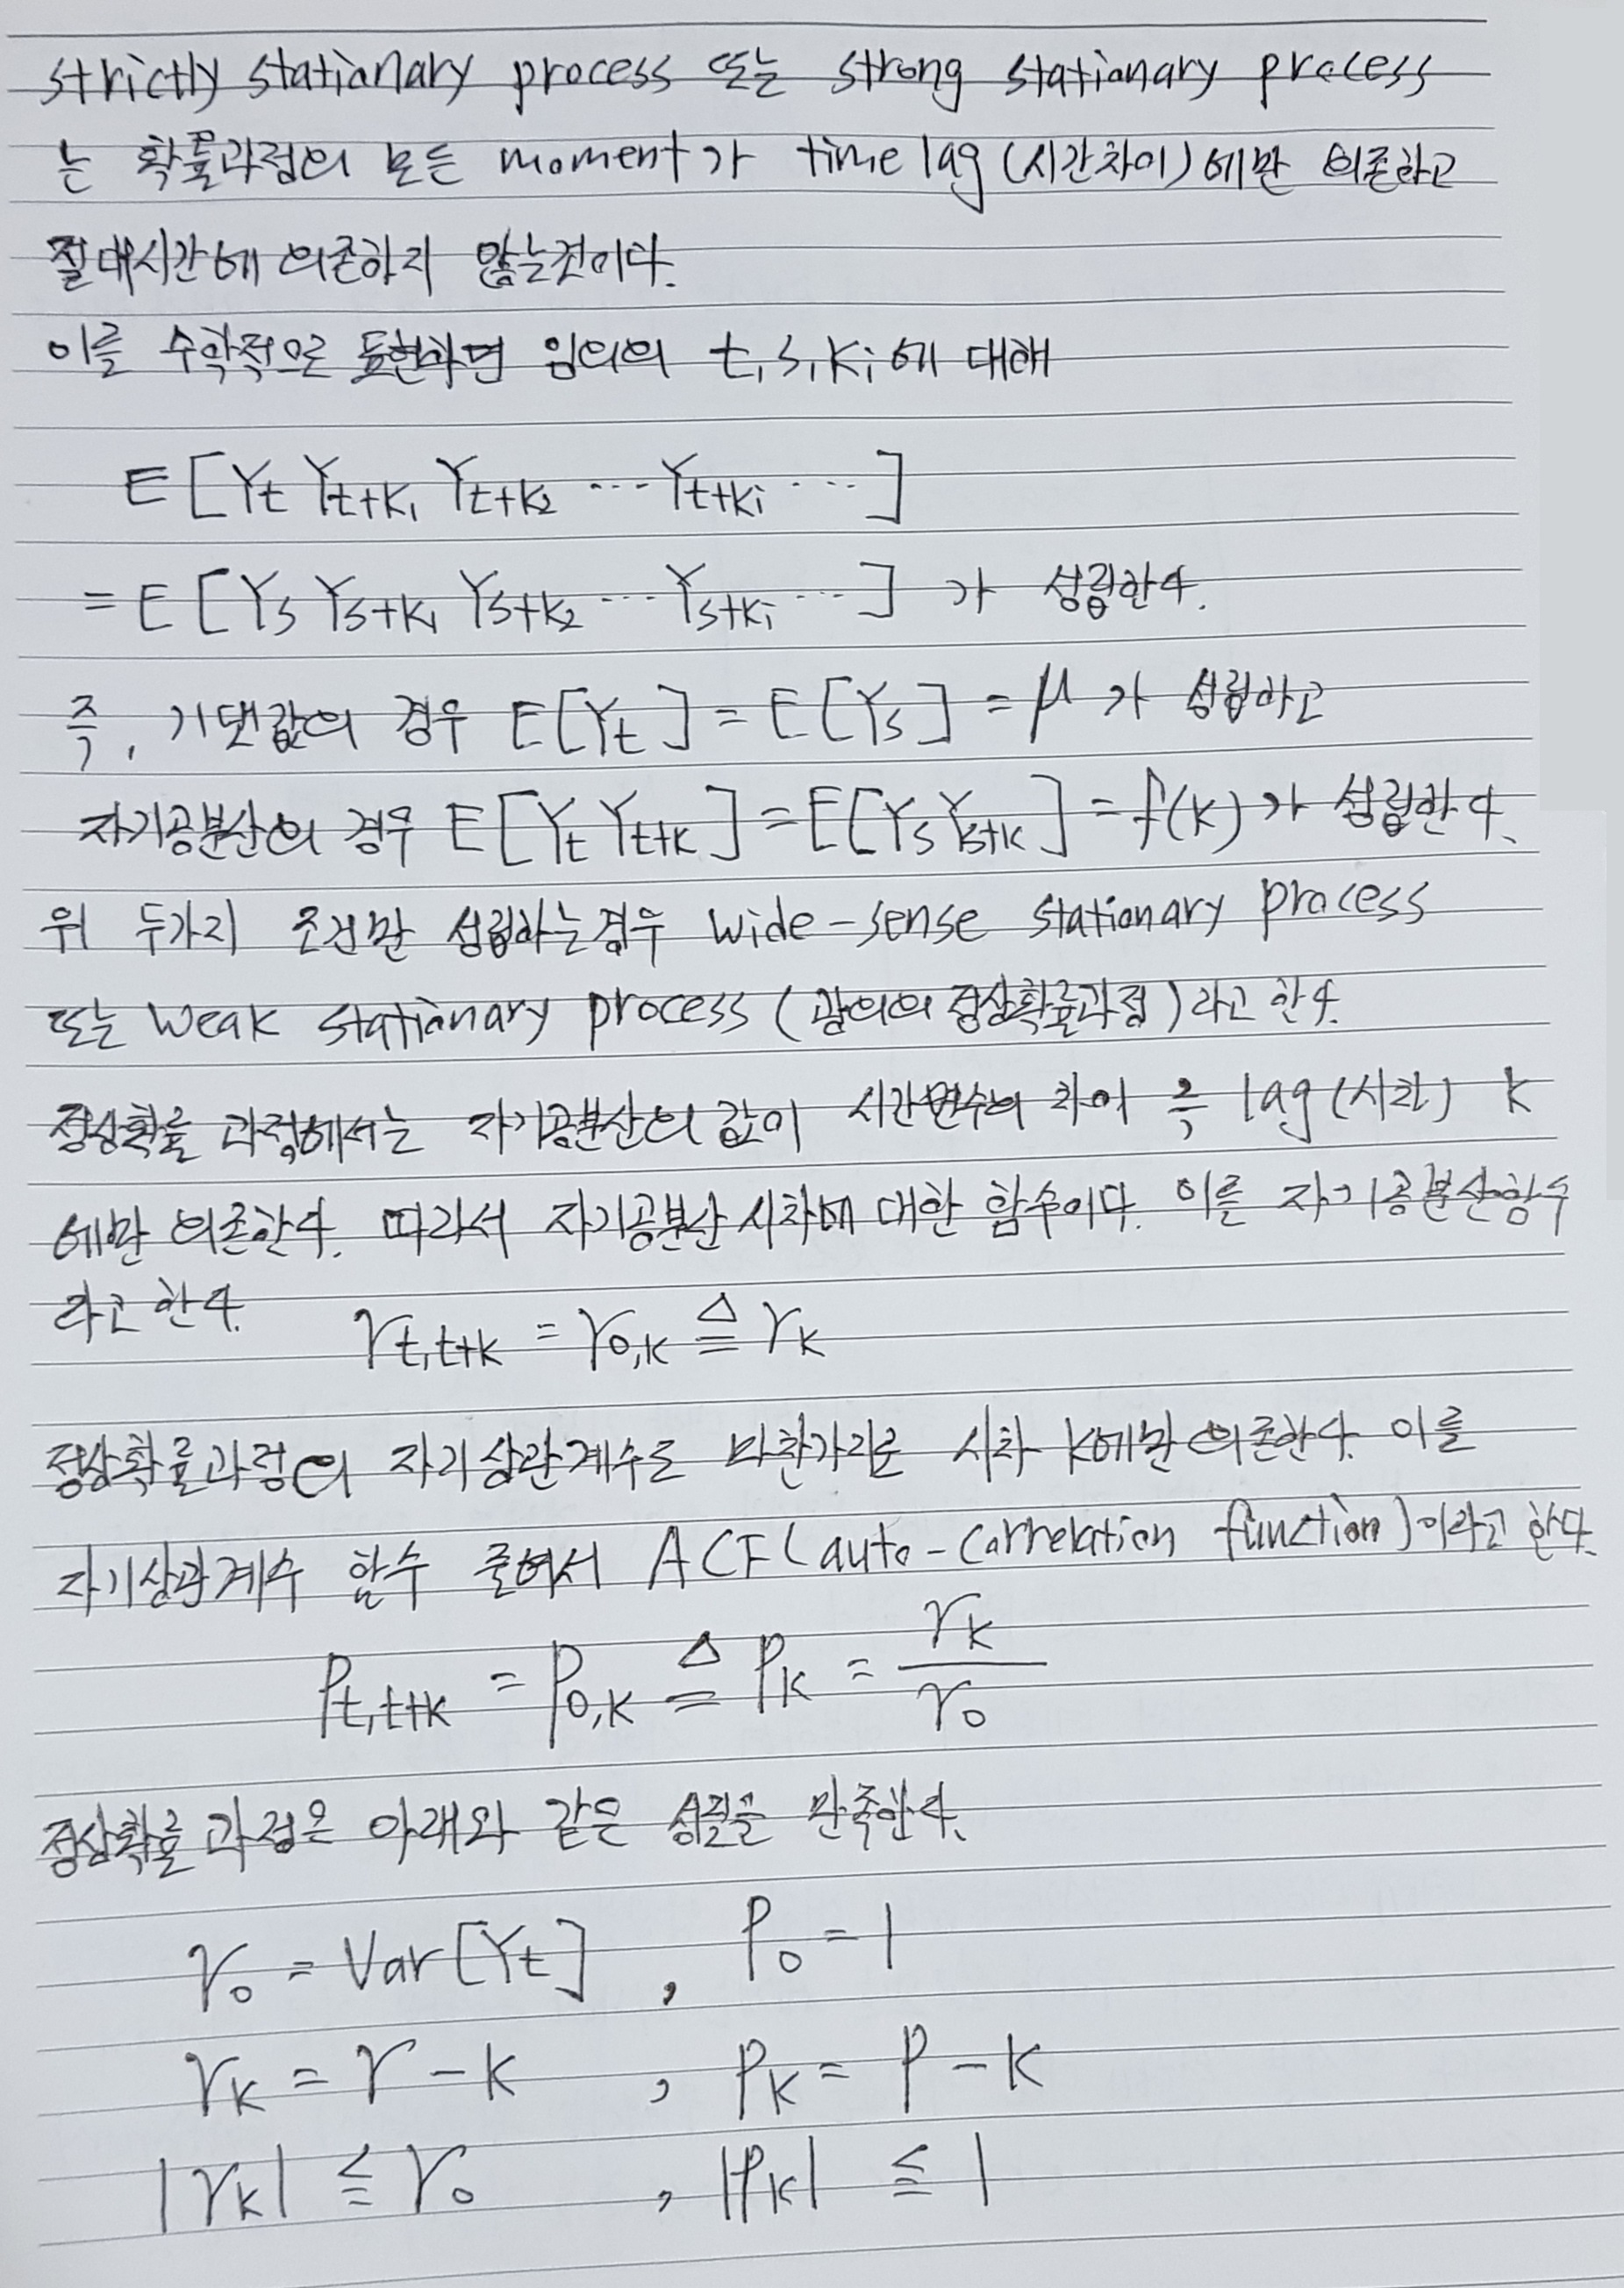 strictly stationary process 또는 strong stationary process
는 확률과정의 모든 moment가 time lag (시간차이)에만 의존하고
절대시간에 의존하지 않는것이다.
이를 수학적으로 표현하면 임의의 t, s, ki에 대해
E [Yt Yt+k1 Yt+k2 ... Yt+ki ...]
= E [Ys Ys+k1 Ys+k2 ... Ys+ki ...] 가 성립한다.
즉, 기댓값의 경우 E[Yt] = E[Ys] = μ 가 성립하고
자기공분산의 경우 E[Yt Yt+k] = E[Ys Ys+k] = f(k) 가 성립한다.
위 두가지 조건만 성립하는경우 wide-sense stationary process
또는 weak stationary process (광의의 정상확률과정)라고 한다.
정상확률 과정에서는 자기공분산의 값이 시간변수의 차이 즉, lag (시차) k
에만 의존한다. 따라서 자기공분산 시차에 대한 함수이다. 이를 자기공분산함수
라고 한다. γt,t+k = γ0,k ≜ γk
정상확률과정의 자기상관계수도 마찬가지로 시차 k에만 의존한다. 이를
자기상관계수 함수 줄여서 ACF (auto-correlation function)이라고 한다.
ρt,t+k = ρ0,k ≜ ρk = γk / γ0
정상확률 과정은 아래와 같은 성질을 만족한다.
γ0 = Var[Yt] , ρ0 = 1
γk = γ-k , ρk = ρ-k
|γk| ≦ γ0 , |ρk| ≦ 1